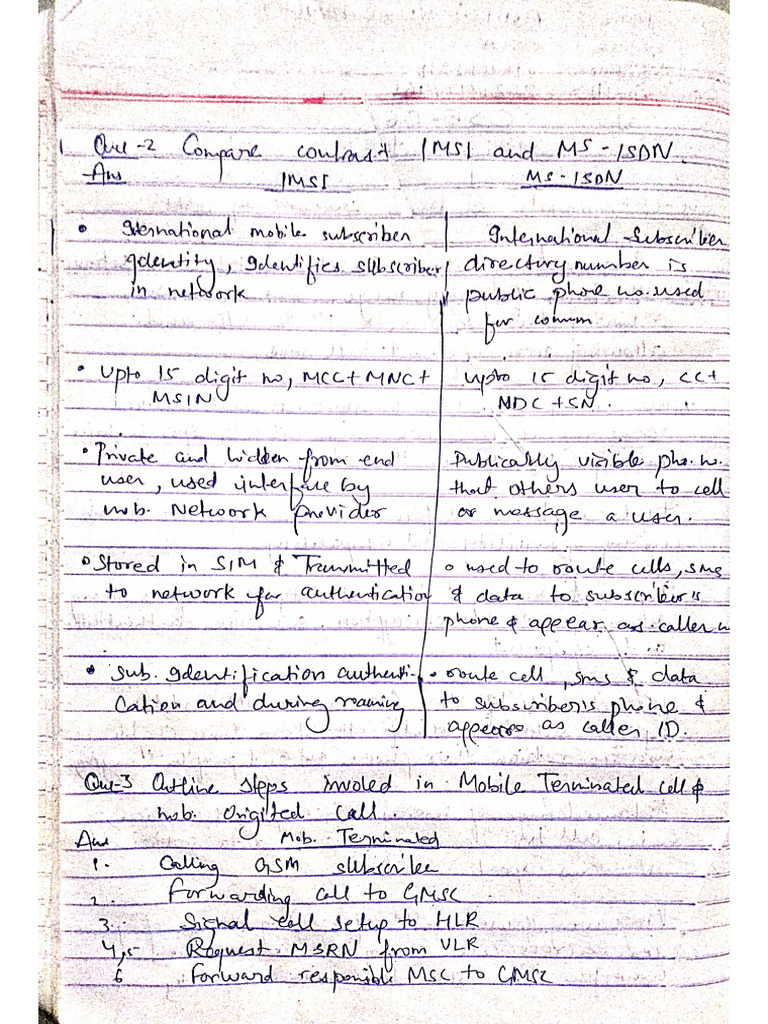 Que-2 Compare contrast IMSI and MS-ISDN
Ans IMSI MS-ISDN
• International mobile subscriber
Identity, Identifies subscriber
in network
International Subscriber
directory number is
public phone no. used
for comm
• Upto 15 digit no, MCC+MNC+
MSIN
Upto 15 digit no, CC+
NDC+SN.
• Private and hidden from end
user, used interface by
mob. Network provider
Publically visible pho. no.
that others user to cell
or message a user.
• Stored in SIM & Transmitted
to network for authentication
• used to route cells, sms
& data to subscriber's
phone & appear as caller
• Sub. Identification authenti-
cation and during roaming
• route cell, sms & data
to subscriber's phone &
appears as caller ID.
Que-3 Outline steps involed in Mobile Terminated cell &
mob. Origited call.
Ans Mob. Terminated
1. Calling GSM subscribe
2. Forwarding call to GMSC
3. Signal call setup to HLR
4,5 Request MSRN from VLR
6 Forward responsible MSC to GMSC